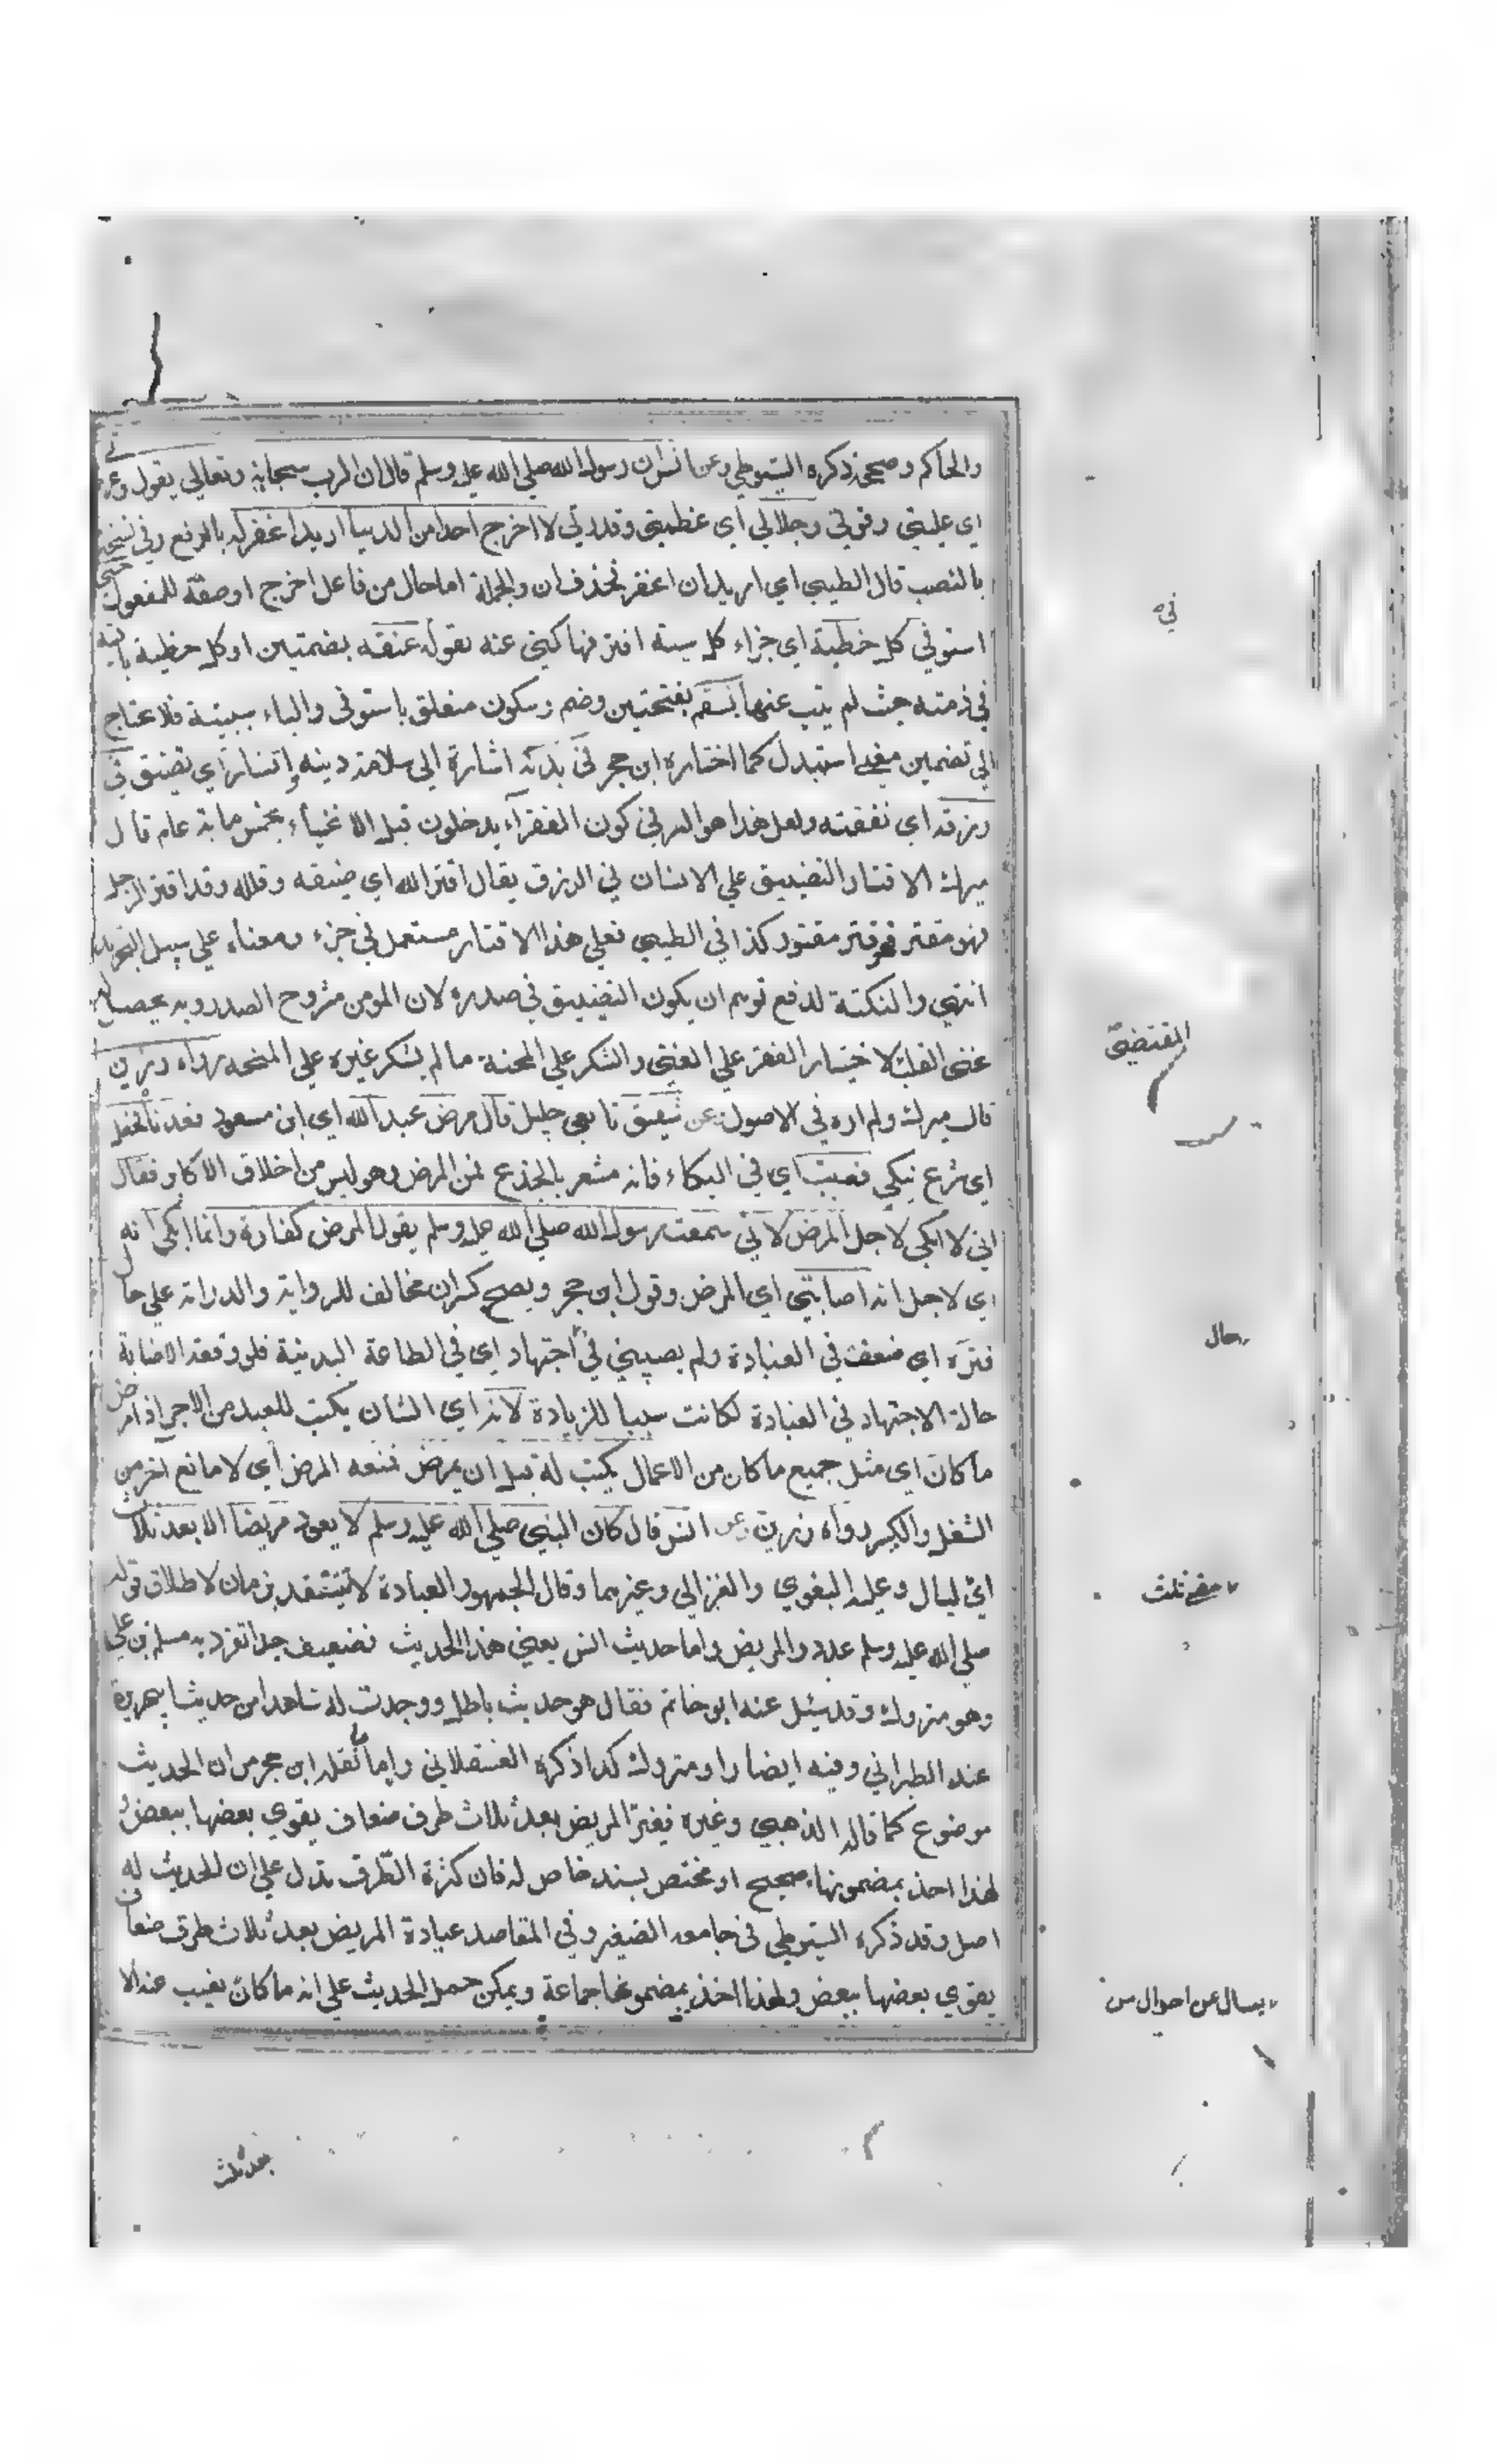 والحاكم وصححه ذكره السيوطي وعن انس ان رسول الله صلي الله عليه وسلم قال ان الرب سبحانه وتعالي يقول وعزتي
اي غلبتي وقوتي وجلالي اي عظمتي وقدرتي لا اخرج احدا من الدنيا اريد اغفر له بالرفع وفي نسخة
بالنصب قال الطيبي اي اريد ان اغفر فحذف ان والجملة اما حال من فاعل اخرج او صفة للمفعول حتي
استوفي كل خطية اي جزاء كل سيئة اقترفها كني عنه بقوله عنقه بضمتين او كل خطية باقية
في ذمته حيث لم يتب عنها بسقم بفتحتين وضم وسكون متعلق باستوفي والباء سببية فلا يحتاج
الي تضمين معني استبدل كما اختاره ابن حجر في بدنه اشارة الي سلامة دينه واقتار اي تضيق في
رزقه اي نفقته ولعل هذا هو السر في كون الفقراء يدخلون قبل الاغنياء بخمس ماية عام قال
ميرك الاقتار التضييق علي الانسان في الرزق يقال اقتر الله اي ضيقه وقلله وقد اقتر الرجل
فهو مقتر وقتر فهو مقتور كذا في الطيبي فعلي هذا الاقتار مستعمل في جزء معناه علي سبيل التجريد
انتهي والنكتة لدفع توهم ان يكون التضييق في صدره لان المومن مشروح الصدر وبه يحصل له
غني القلب لاختيار الفقر علي الغني والشكر علي المحنة ما لم يشكر غيره علي المنحه رواه رزين
قال ميرك ولم اره في الاصول عن شقيق تابعي جليل قال مرض عبد الله اي ابن مسعود فعدناه فجعل
اي شرع يبكي فعيب اي في البكاء فانه مشعر بالجزع من المرض وهو ليس من اخلاق الاكابر فقال
اني لا ابكي لاجل المرض لاني سمعت رسول الله صلي الله عليه وسلم يقول المرض كفارة وانما ابكي انه
اي لاجل انه اصابني اي المرض وقول ابن حجر ويصح كسر ان مخالف للرواية والدراية علي حال
فترة اي ضعف في العبادة ولم يصيبني في اجتهاد اي في الطاعة البدنية فلو وقعت الاصابة
حالة الاجتهاد في العبادة لكانت سببا للزيادة لانه اي الشان يكتب للعبد من الاجر اذا مرض
ما كان اي مثل جميع ما كان من الاعمال يكتب له قبل ان يمرض فمنعه المرض اي لا مانع اخر من
الشغل والكبر رواه رزين وعن انس قال كان النبي صلي الله عليه وسلم لا يعود مريضا الا بعد ثلاث
اي ليال وعليه البغوي والغزالي وغيرهما وقال الجمهور العيادة لا تتقيد بزمان لاطلاق قوله
صلي الله عليه وسلم عودوا المريض واما حديث انس يعني هذا الحديث فضعيف جدا تفرد به مسلم بن علي
وهو متروك وقد سئل عنه ابو حاتم فقال هو حديث باطل ووجدت له شاهدا من حديث ابي هريرة
عند الطبراني وفيه ايضا راو متروك كذا ذكره العسقلاني واما ما نقله ابن حجر من ان الحديث
موضوع كما قاله الذهبي وغيره فيغتر المريض بعد ثلاث طرق ضعاف يقوي بعضها ببعض و
لهذا اخذ بمضمونها صحيح او مختص بسند خاص له فان كثرة الطرق تدل علي ان الحديث له
اصل وقد ذكره السيوطي في جامعه الصغير وفي المقاصد عيادة المريض بعد ثلاث طرق ضعاف
يقوي بعضها ببعض ولهذا اخذ بمضمونها جماعة ويمكن حمل الحديث علي انه ما كان يغيب عنه الا
المقتضي
حال
مضي ثلث
يسال عن احوال من
بعد ثلث